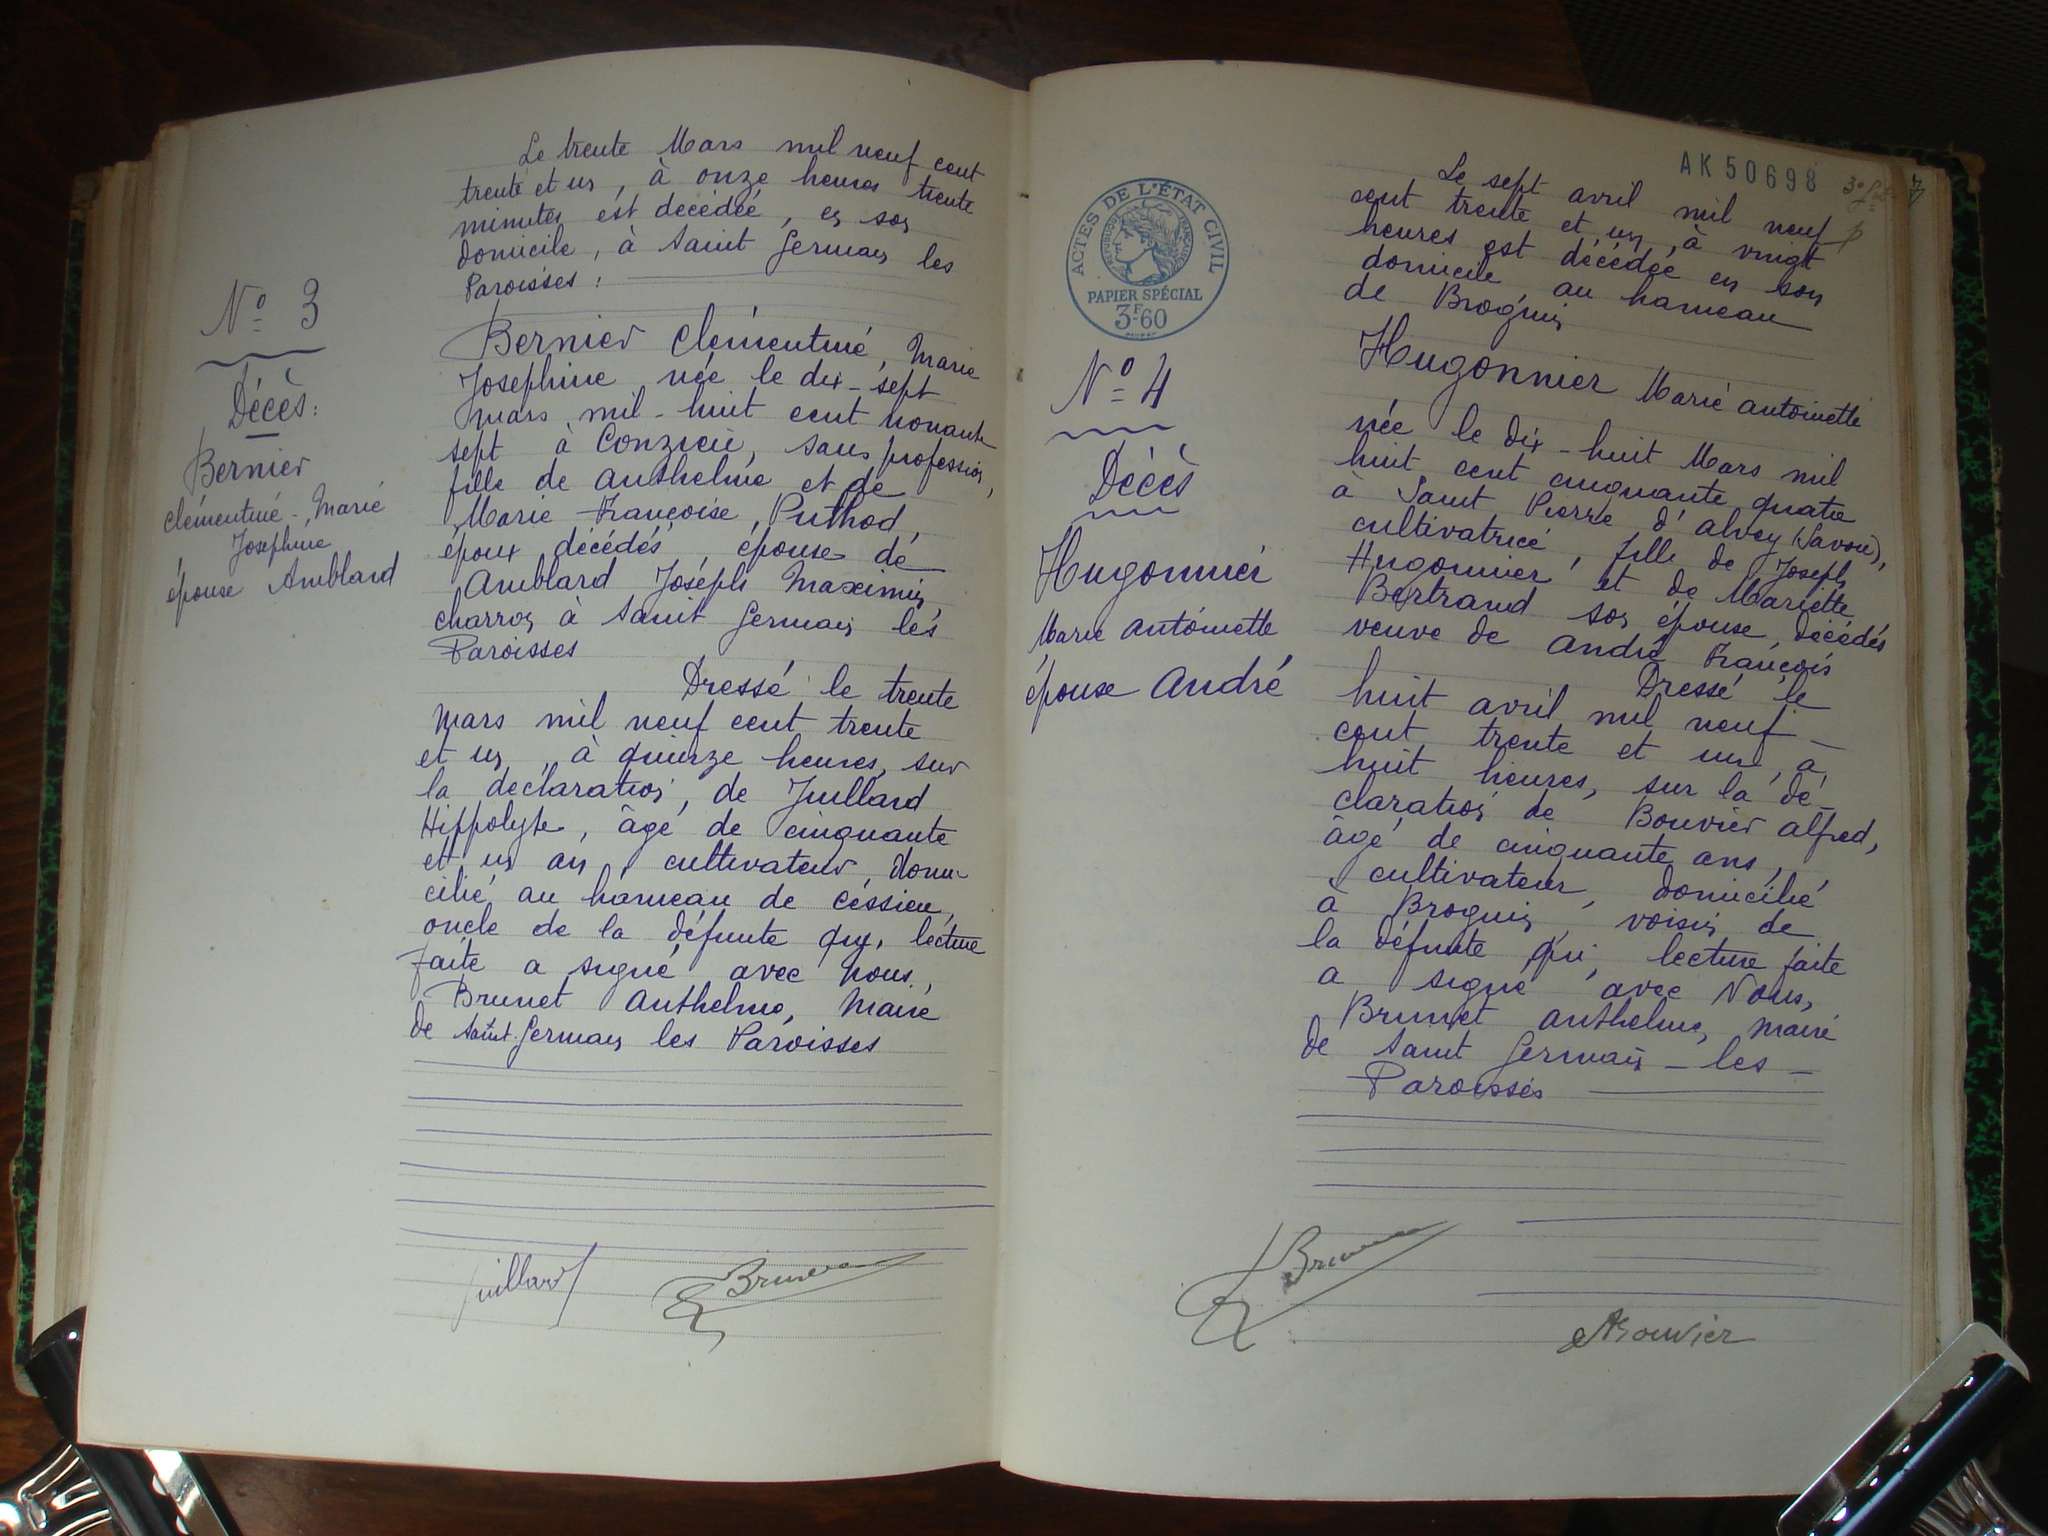 N° 3
Décès:
Bernier
Clémentine - Marie
Josephine
épouse Amblard
Le trente Mars mil neuf cent
trente et un, à onze heures trente
minutes est décédée, en son
domicile, à Saint Germain les
Paroisses :
Bernier Clémentine, Marie
Josephine née le dix-sept
Mars mil-huit cent nonante
sept à Conzieu, sans profession,
fille de Anthelme et de
Marie Françoise, Puthod,
époux décédés, épouse de
Amblard Joseph Maximin,
charron à Saint Germain les
Paroisses
Dressé le trente
Mars mil neuf cent trente
et un, à quinze heures, sur
la déclaration, de Juillard
Hippolyte, âgé de cinquante
et un an, cultivateur, domi-
cilié au hameau de Céssieu,
oncle de la défunte qui, lecture
faite a signé avec nous,
Brunet Anthelme, Maire
de Saint Germain les Paroisses
Juillard
Brunet
AK 50698
7
ACTES DE L'ÉTAT CIVIL
RÉPUBLIQUE FRANÇAISE
PAPIER SPÉCIAL
3F60
N° 4
Décès
Hugonnier
Marie Antoinette
épouse André
Le sept avril mil neuf
cent trente et un, à vingt
heures est décédée en son
domicile au hameau
de Brognin
Hugonnier Marie Antoinette
née le dix-huit Mars mil
huit cent cinquante quatre
à Saint Pierre d'Alvey (Savoie),
cultivatrice, fille de Joseph
Hugonnier et de Mariette
Bertrand son épouse, décédés
veuve de André François
Dressé le
huit avril mil neuf -
cent trente et un, à
huit heures, sur la dé-
claration de Bouvier Alfred,
âgé de cinquante ans,
cultivateur, domicilié
à Brognin, voisin de
la défunte qui, lecture faite
a signé avec Nous,
Brunet Anthelme, Maire
de Saint Germain - les -
Paroisses
Brunet
A Bouvier